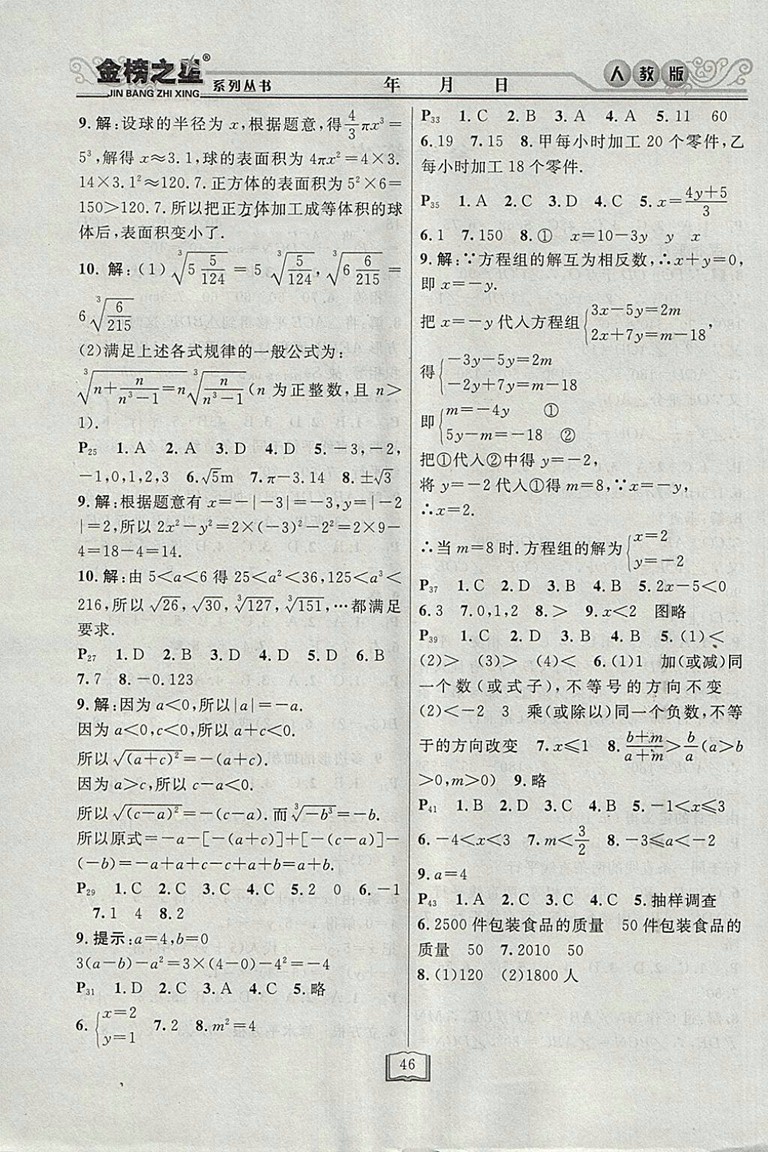 金榜之星®
JIN BANG ZHI XING
系列丛书
年 月 日
人教版
9.解:设球的半径为 x,根据题意,得4/3πx³=
5³,解得 x≈3.1,球的表面积为 4πx²=4×3.
14×3.1²≈120.7.正方体的表面积为 5²×6=
150>120.7.所以把正方体加工成等体积的球
体后,表面积变小了.
10.解:(1)∛(5 5/124)=5∛(5/124),∛(6 6/215)=
6∛(6/215)
(2)满足上述各式规律的一般公式为:
∛(n+n/(n³-1))=n∛(n/(n³-1))(n 为正整数,且 n>
1).
P25 1.A 2.A 3.D 4.D 5.-3,-2,
-1,0,1,2,3 6.√5m 7.π-3.14 8.±√3
9.解:根据题意有 x=-|-3|=-3,y=|-2
|=2,所以 2x²-y²=2×(-3)²-2²=2×9-
4=18-4=14.
10.解:由 5<a<6 得 25<a²<36,125<a³<
216,所以 √26,√30,∛127,∛151,…都满足
要求.
P27 1.D 2.B 3.D 4.D 5.D 6.B
7.7 8.-0.123
9.解:因为 a<0,所以|a|=-a.
因为 a<0,c<0,所以 a+c<0.
所以√(a+c)²=-(a+c).
因为 a>c,所以 c-a<0.
所以√(c-a)²=-(c-a).而∛-b³=-b.
所以原式=-a-[-(a+c)]+[-(c-a)]-
(-b)=-a+a+c-c+a+b=a+b.
P29 1.C 2.C 3.C 4.C 5.2 0 6.-1
7.1 4 8.2
9.提示:a=4,b=0
3(a-b)-a²=3×(4-0)-4²=-4
P31 1.D 2.C 3.A 4.C 5.略
6.{x=2
y=1 7.2 8.m²=4
P33 1.C 2.B 3.A 4.A 5.11 60
6.19 7.15 8.甲每小时加工 20 个零件,乙
每小时加工 18 个零件.
P35 1.A 2.C 3.D 4.C 5.x=(4y+5)/3
6.1 7.150 8.① x=10-3y y x
9.解:∵方程组的解互为相反数,∴x+y=0,
即 x=-y.
把 x=-y 代人方程组{3x-5y=2m
2x+7y=m-18,
得{-3y-5y=2m
-2y+7y=m-18
即{m=-4y ①
5y-m=-18 ②
把①代人②中得 y=-2,
将 y=-2 代人①得 m=8,∵x=-y,
∴x=2.
∴当 m=8 时.方程组的解为{x=2
y=-2
P37 1.C 2.D 3.B 4.B 5.2x-5<0
6.3 7.0,1,2 8.> 9.x<2 图略
P39 1.C 2.D 3.B 4.B 5.(1)<
(2)> (3)> (4)< 6.(1)1 加(或减)同
一个数(或式子),不等号的方向不变
(2)<-2 3 乘(或除以)同一个负数,不等
于的方向改变 7.x≤1 8.(b+m)/(a+m)>b/a(a>b
>0,m>0) 9.略
P41 1.B 2.D 3.C 4.B 5.-1<x≤3
6.-4<x<3 7.m<3/2 8.-3≤a<-2
9.a=4
P43 1.A 2.D 3.C 4.C 5.抽样调查
6.2500 件包装食品的质量 50 件包装食品的
质量 50 7.2010 50
8.(1)120 (2)1800 人
46